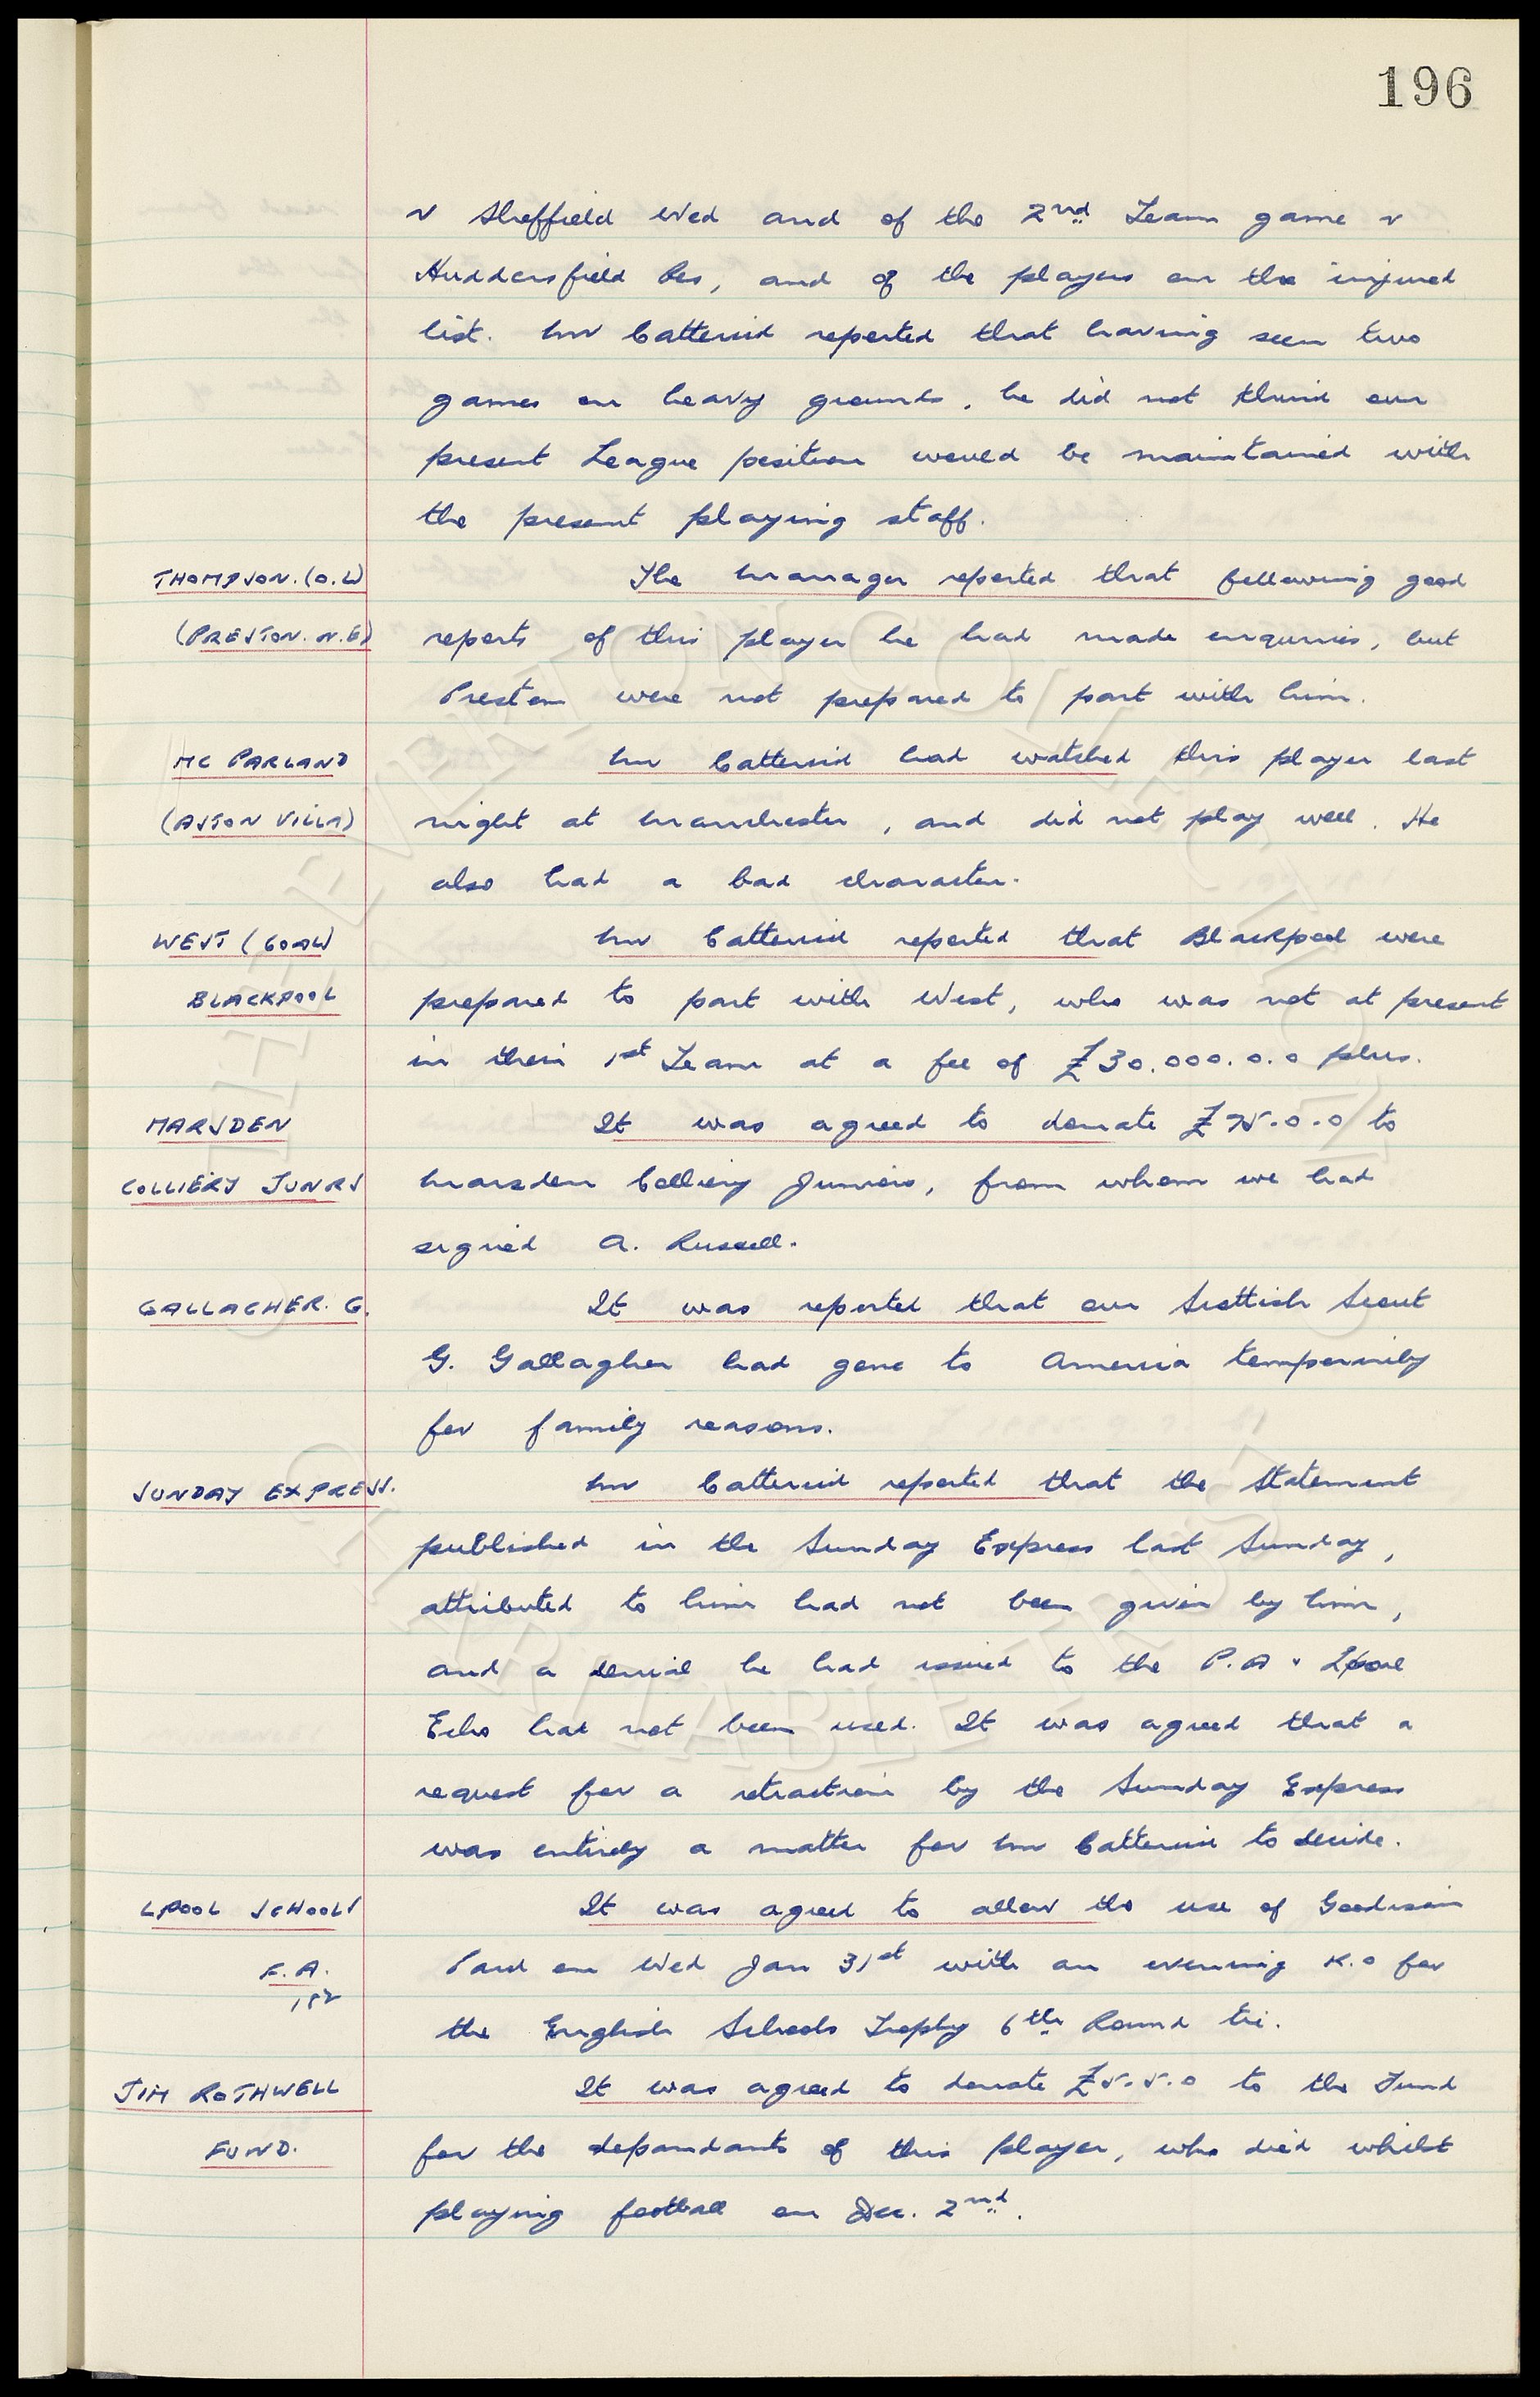 196
v Sheffield Wed and of the 2nd Team game v
Huddersfield Res, and of the players on the injured
list. Mr Catterick reported that having seen two
games on heavy grounds, he did not think our
present League position would be maintained with
the present playing staff.
THOMPSON. (O.L) The Manager reported that following good
(PRESTON. N.E) reports of this player he had made enquiries, but
Preston were not prepared to part with him.
MC PARLAND Mr Catterick had watched this player last
(ASTON VILLA) night at Manchester, and did not play well. He
also had a bad character.
WEST (GOAL) Mr Catterick reported that Blackpool were
BLACKPOOL prepared to part with West, who was not at present
in their 1st Team at a fee of £30.000.0.0 plus.
MARSDEN It was agreed to donate £75.0.0 to
COLLIERY JUNRS Marsden Colliery Juniors, from whom we had
signed A. Russell.
GALLAGHER. G. It was reported that our Scottish Scout
G. Gallagher had gone to America temporarily
for family reasons.
SUNDAY EXPRESS. Mr Catterick reported that the Statement
published in the Sunday Express last Sunday,
attributed to him had not been given by him,
and a denial he had issued to the P.A & Lpool
Echo had not been used. It was agreed that a
request for a retraction by the Sunday Express
was entirely a matter for Mr Catterick to decide.
LPOOL SCHOOLS It was agreed to allow the use of Goodison
F.A. Park on Wed Jan 31st with an evening K.O for
the English Schools Trophy 6th Round tie.
JIM ROTHWELL It was agreed to donate £5.5.0 to the Fund
FUND. for the dependants of this player, who died whilst
playing football on Dec. 2nd.
THE EVERTON COLLECTION
CHARITABLE TRUST